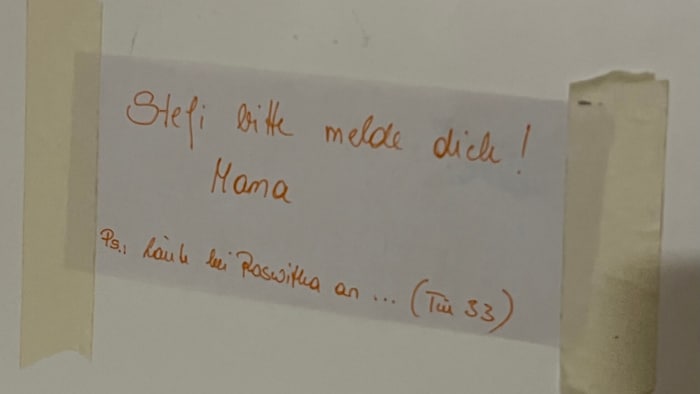 Stefi bitte melde dich!
Mama
Ps.: Läute bei Roswitha an ... (Tür 33)